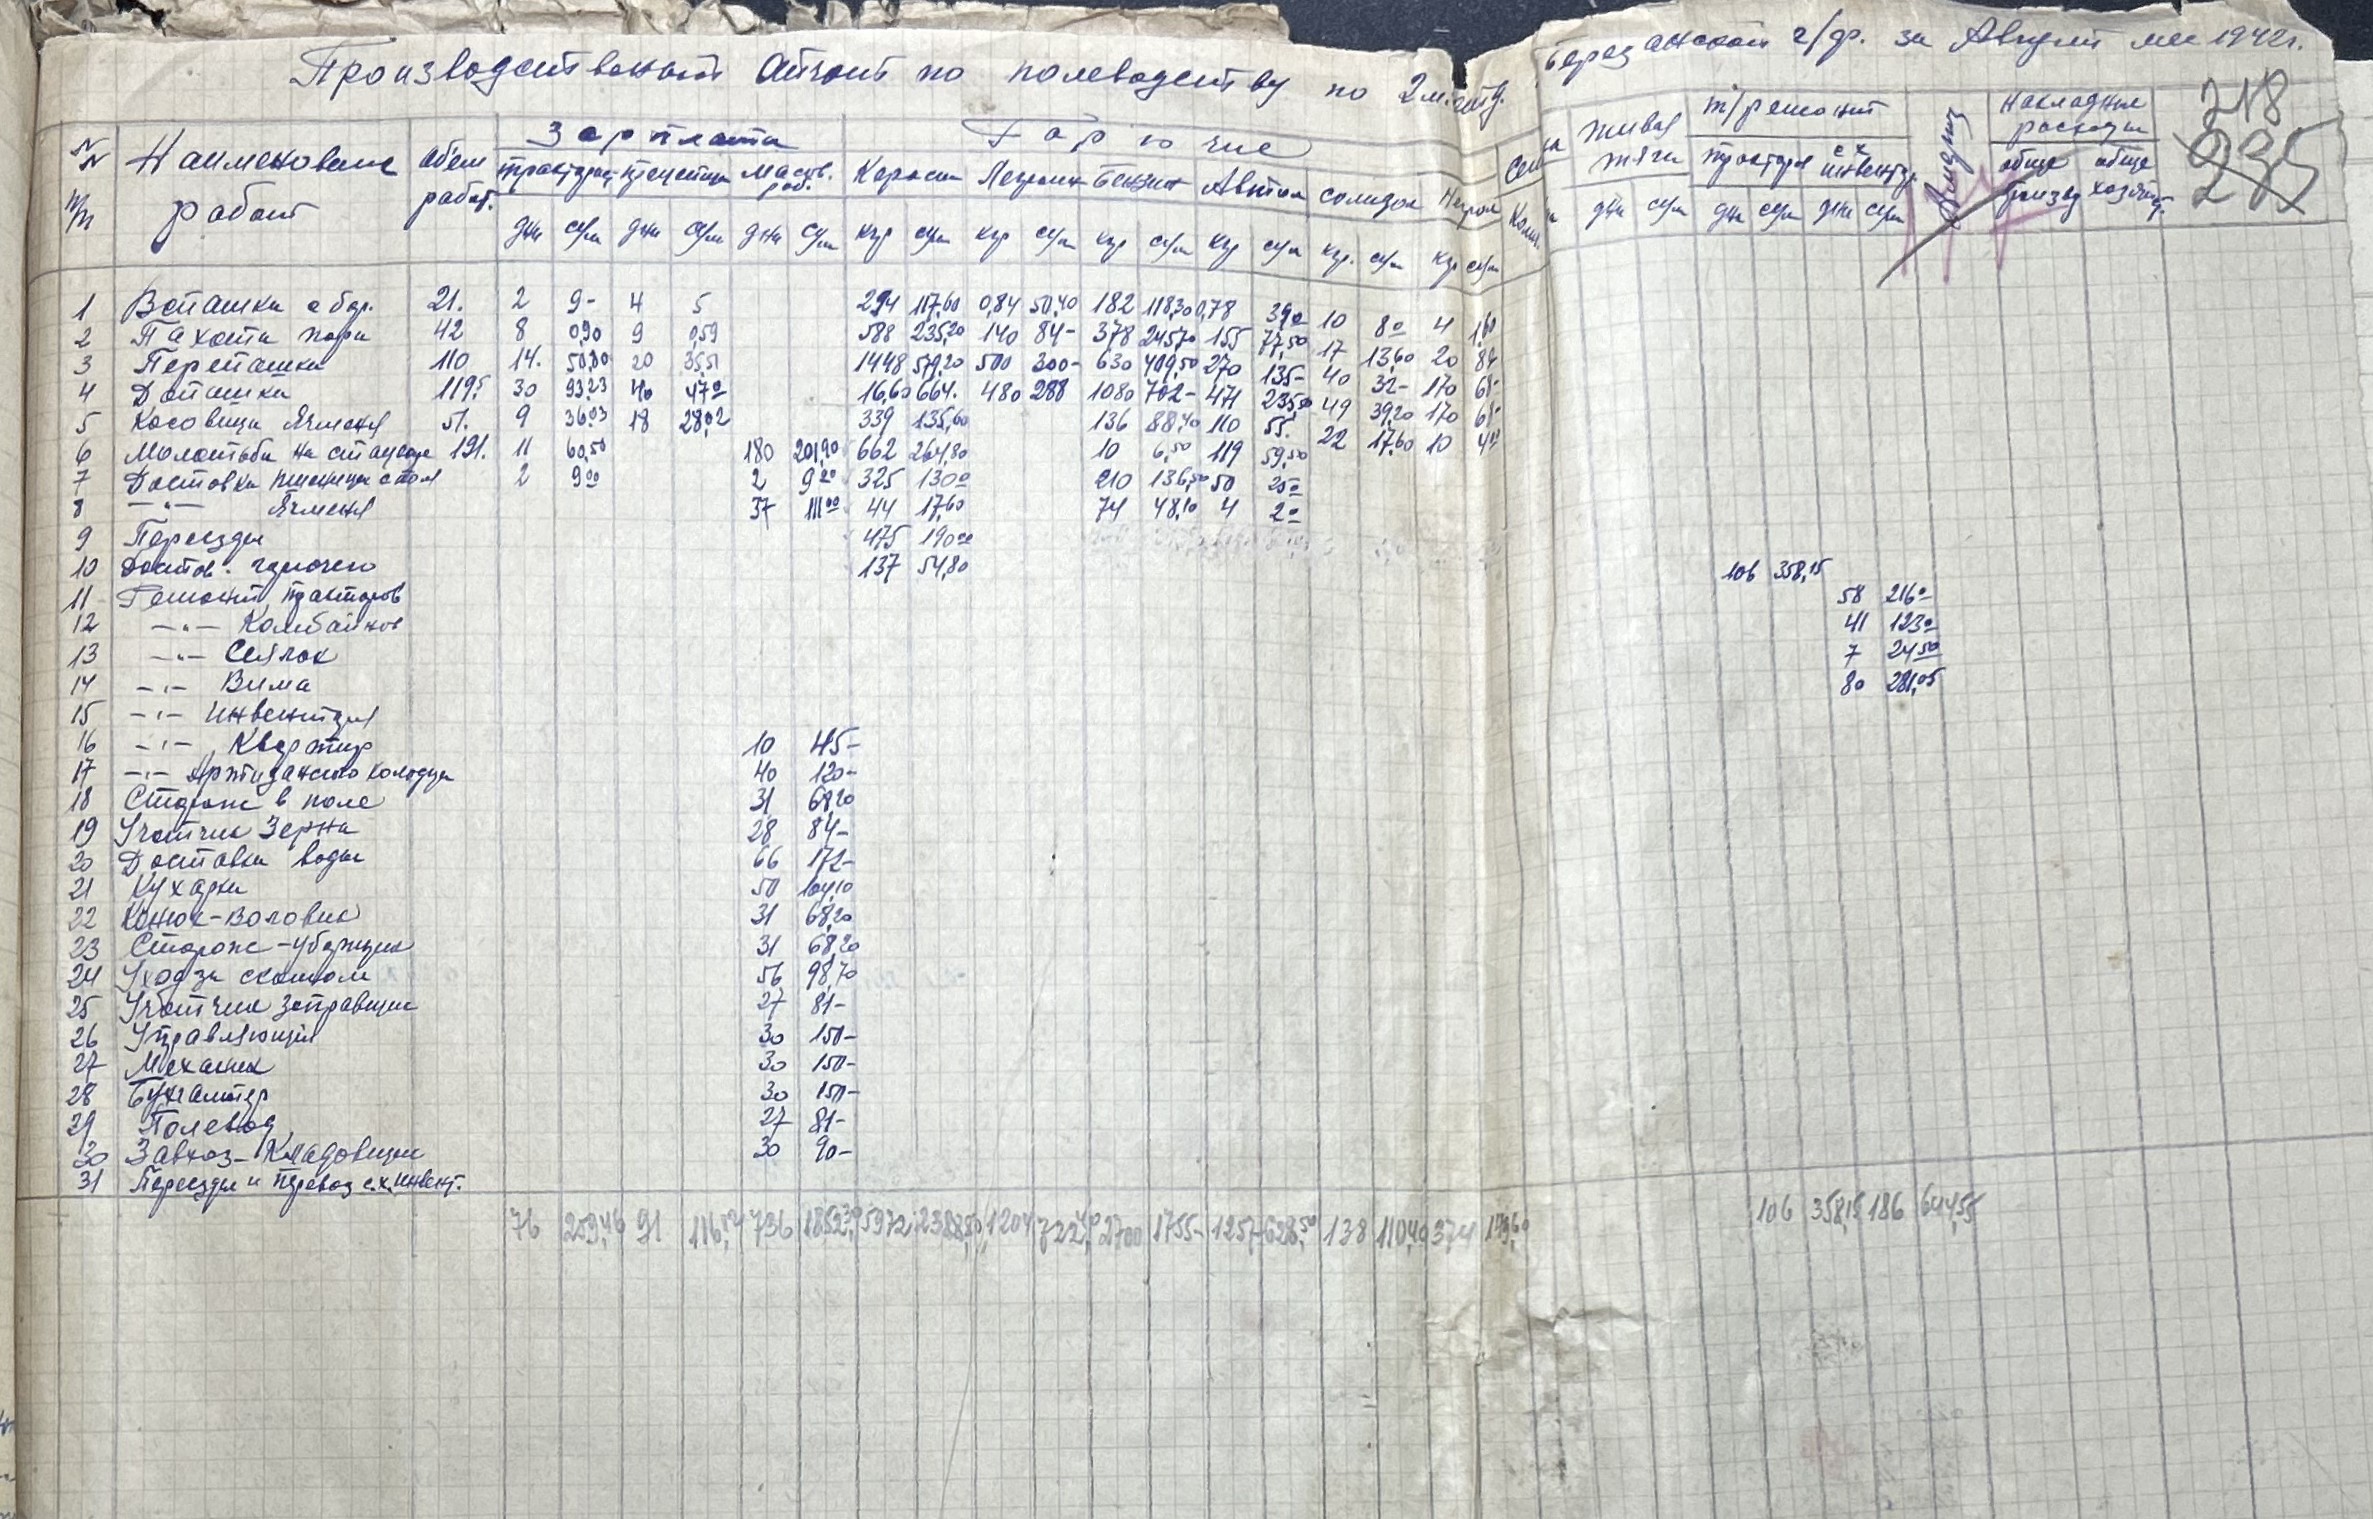 Производственный отчет по полеводству по 2 м. отд. Березанской г/др. за Август м-ц 1942 г.
218
235
N N п/п Наименование работ Обем работ. Зарплата Горючие Живая тяга т/ремонт Накладные расходы
трактористы прицепщики Масов. раб. Керосин Легроин Бензин Автол солидол Нигрол трактора с х инвентр. обще произв обще хозяйств.
дни сум дни сум дни сум кгр сум кгр сум кгр сум кгр сум кгр. сум кгр сум Колич. дни сум дни сум дни сум
1 Вспашка с бор. 21. 2 9- 4 5 294 117,60 0,84 50,40 182 118,30 0,78 39,0 10 8,0 4 1,60
2 Пахота пара 42 8 0,90 9 0,59 588 235,20 140 84- 378 245,70 155 77,50 17 13,60 20 8
3 Перепашка 110 14. 50,80 20 35,51 1448 579,20 500 300- 630 409,50 270 135- 40 32- 170 68-
4 Допашка 119,5 30 93,23 40 47,0 16,60 664. 480 288 1080 702- 471 235,50 49 39,20 170 68-
5 Косовица Ячменя 51. 9 36,03 18 28,02 339 135,60 136 88,40 110 55. 22 17,60 10 4,00
6 Молотьба на стацеонр 191. 11 60,50 180 201,90 662 264,80 10 6,50 119 59,50
7 Доставка пшеницы с поля 2 9,00 2 9,20 325 130,0 210 136,50 50 25,0
8 -"- Ячменя 37 111,00 44 17,60 74 48,10 4 2,0
9 Переезды 475 190,00
10 Достов. горючего 137 54,80
11 Ремонт тракторов 106 358,15
12 -"- Комбайнов 58 216,0
13 -"- Сеялок 41 123,0
14 -"- Вима 7 24,50
15 -"- Инвентаря 80 281,05
16 -"- Квартир 10 45-
17 -"- Артизанского колодца 40 120-
18 Сторож в поле 31 68,20
19 Учотчик Зерна 28 84-
20 Доставка воды 66 172-
21 Кухарки 50 104,10
22 Конюх-воловик 31 68,20
23 Сторож-уборщик 31 68,20
24 Уход за скотом 56 98,70
25 Учотчик Заправщик 27 81-
26 Управляющий 30 150-
27 Механик 30 150-
28 Бухгалтер 30 150-
29 Полевод 27 81-
30 Завхоз-Кладовщик 30 90-
31 Переезды и перевоз с.х. инвент.
76 259,46 91 116, 736 1852,30 5972 2388,80 1204 722,40 2700 1755- 1257 628,50 138 110,40 374 149,60 106 358,15 186 644,55